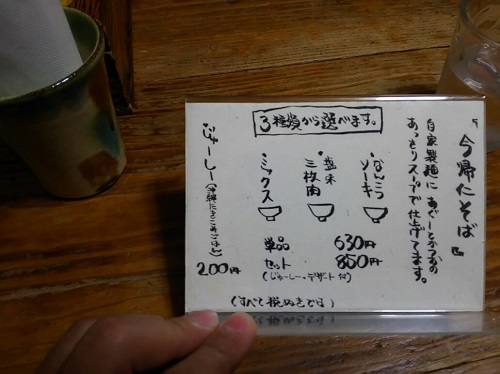 『今帰仁そば』
自家製麺に あぐーとかつおの
あっさりスープで仕上げてます。
3種類から選べます。
なんこつ
ソーキ
塩味
三枚肉
ミックス
単品 630円
セット 850円
(じゅーしー・デザート付)
じゅーしー
200円
(すべて税ぬきです)